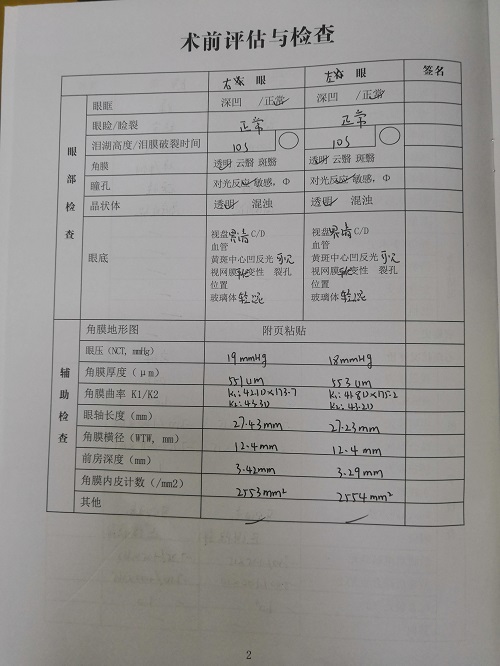 术前评估与检查
右 眼 左 眼 签名
眼部检查
眼眶 深凹 /正常 深凹 /正常
眼睑/睑裂 正常 正常
泪湖高度/泪膜破裂时间 10s 10s
角膜 透明 云翳 斑翳 透明 云翳 斑翳
瞳孔 对光反应 敏感，Φ 对光反应 敏感，Φ
晶状体 透明 混浊 透明 混浊
眼底
视盘界清 C/D 视盘界清 C/D
血管 血管
黄斑中心凹反光可见 黄斑中心凹反光可见
视网膜 变性 裂孔 视网膜 变性 裂孔
位置 位置
玻璃体轻混 玻璃体轻混
辅助检查
角膜地形图 附页粘贴
眼压（NCT, mmHg） 19mmHg 18mmHg
角膜厚度（μm） 551um 553um
角膜曲率 K1/K2 K1:42.10×173.7 K1:41.80×175.2
K2:43.30 K2:43.20
眼轴长度（mm） 27.43mm 27.23mm
角膜横径（WTW, mm） 12.4mm 12.4mm
前房深度（mm） 3.42mm 3.29mm
角膜内皮计数（/mm2） 2553mm² 2554mm²
其他
2